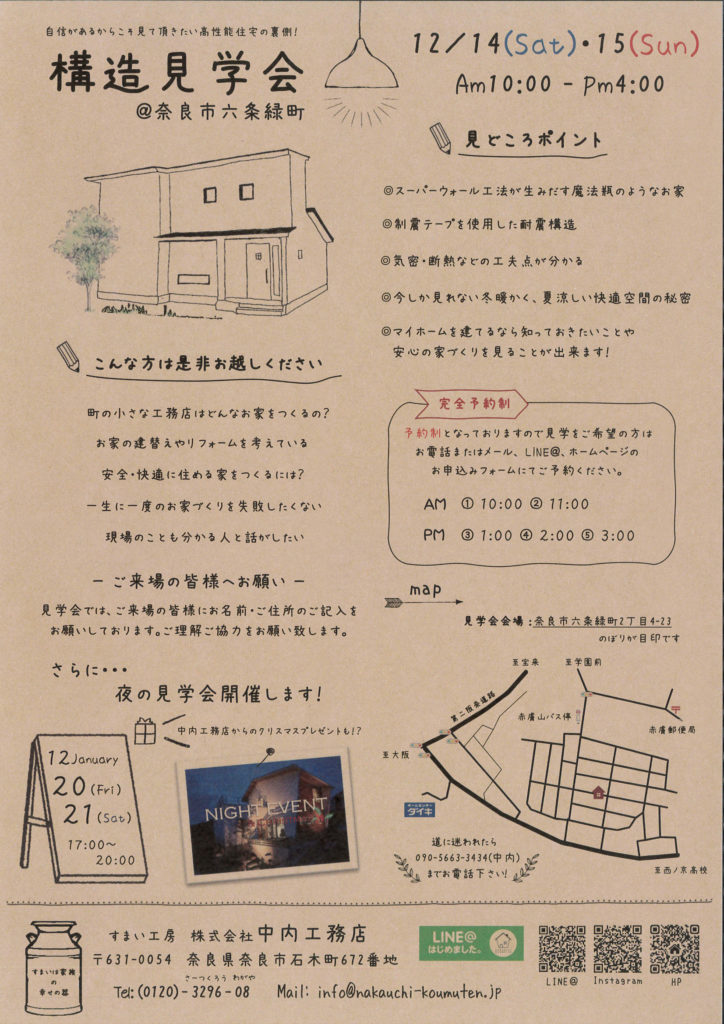 自信があるからこそ見て頂きたい高性能住宅の裏側!
構造見学会
@奈良市六条緑町
12/14(Sat)・15(Sun)
Am10:00 - Pm4:00
見どころポイント
◎スーパーウォール工法が生みだす魔法瓶のようなお家
◎制震テープを使用した耐震構造
◎気密・断熱などの工夫点が分かる
◎今しか見れない冬暖かく、夏涼しい快適空間の秘密
◎マイホームを建てるなら知っておきたいことや
安心の家づくりを見ることが出来ます!
こんな方は是非お越しください
町の小さな工務店はどんなお家をつくるの?
お家の建替えやリフォームを考えている
安全・快適に住める家をつくるには?
一生に一度のお家づくりを失敗したくない
現場のことも分かる人と話がしたい
完全予約制
予約制となっておりますので見学をご希望の方は
お電話またはメール、LINE@、ホームページの
お申込みフォームにてご予約ください。
AM ① 10:00 ② 11:00
PM ③ 1:00 ④ 2:00 ⑤ 3:00
– ご来場の皆様へお願い –
見学会では、ご来場の皆様にお名前・ご住所のご記入を
お願いしております。ご理解ご協力をお願い致します。
さらに・・・
夜の見学会開催します!
中内工務店からのクリスマスプレゼントも!?
12January
20(Fri)
21(Sat)
17:00〜
20:00
NIGHT EVENT
map
見学会会場:奈良市六条緑町2丁目4-23
のぼりが目印です
至宝来
至学園前
第二阪奈道路
赤膚山バス停
赤膚郵便局
至大阪
ホームセンター
ダイキ
至西ノ京高校
道に迷われたら
090-5663-3434(中内)
までお電話下さい!
すまいは家族
の
幸せの器
すまい工房 株式会社中内工務店
〒631-0054 奈良県奈良市石木町672番地
さーつくろう わがや
Tel:(0120)-3296-08 Mail: info@nakauchi-koumuten.jp
LINE@
はじめました。
LINE@
Instagram
HP